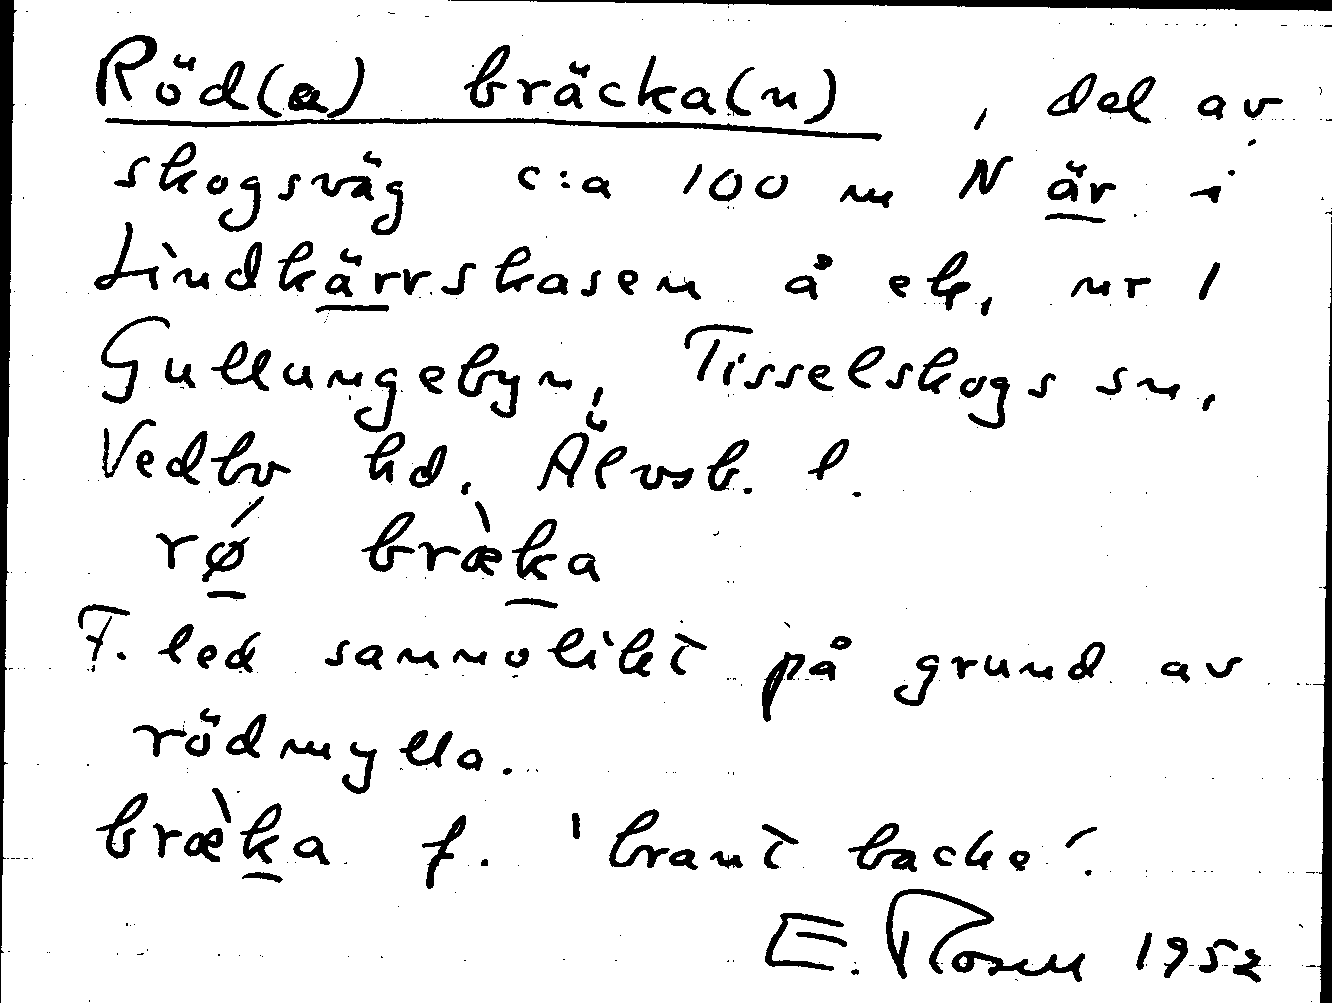 Röd(a) bräcka(n), del av
skogsväg c:a 100 m N är i
Lindkärrskasen å ek. nr 1
Gullungebyn, Tisselskogs sn,
Vedbo hd, Älvsb. l.
rǿ bræ̀ka
F. led sannolikt på grund av
rödmylla.
bræ̀ka f. 'brant backe'.
E. Rosell 1952